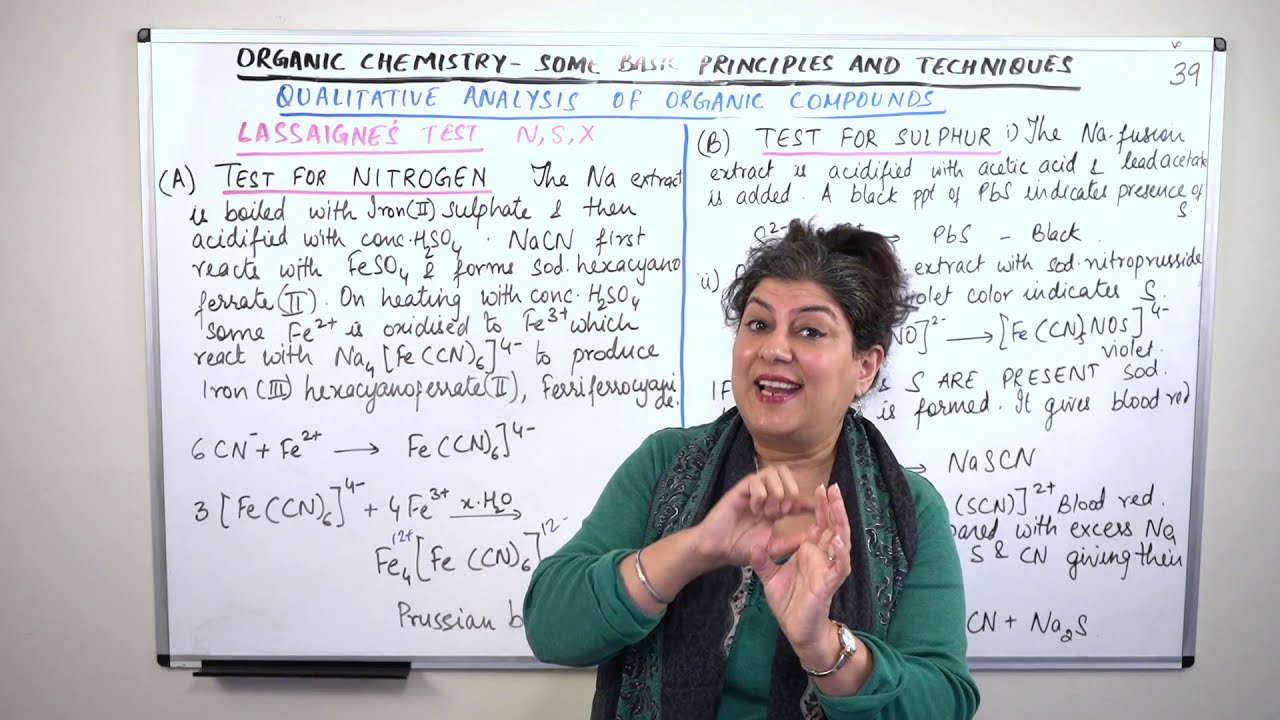 ORGANIC CHEMISTRY - SOME BASIC PRINCIPLES AND TECHNIQUES
39
QUALITATIVE ANALYSIS OF ORGANIC COMPOUNDS
LASSAIGNE'S TEST N, S, X
(A) TEST FOR NITROGEN The Na extract
is boiled with Iron(II) sulphate & then
acidified with conc. H₂SO₄. NaCN first
reacts with FeSO₄ & forms sod. hexacyano
ferrate(II). On heating with conc. H₂SO₄
some Fe²⁺ is oxidised to Fe³⁺ which
react with Na₄[Fe(CN)₆]⁴⁻ to produce
Iron(III) hexacyanoferrate(II), Ferriferrocyanide.
6CN⁻ + Fe²⁺ ⟶ Fe(CN)₆]⁴⁻
3[Fe(CN)₆]⁴⁻ + 4Fe³⁺ x.H₂O⟶
Fe₄¹²⁺[Fe(CN)₆]¹²⁻
Prussian
(B) TEST FOR SULPHUR i) The Na-fusion
extract is acidified with acetic acid & lead acetate
is added. A black ppt of PbS indicates presence of
S.
S²⁻ ⟶ PbS - Black.
ii) extract with sod. nitroprusside
violet color indicates S.
NO]²⁻ ⟶ [Fe(CN)₅NOS]⁴⁻
violet.
IF S ARE PRESENT sod.
is formed. It gives blood red
⟶ NaSCN
(SCN)]²⁺ Blood red.
with excess Na,
S & CN giving their
CN + Na₂S